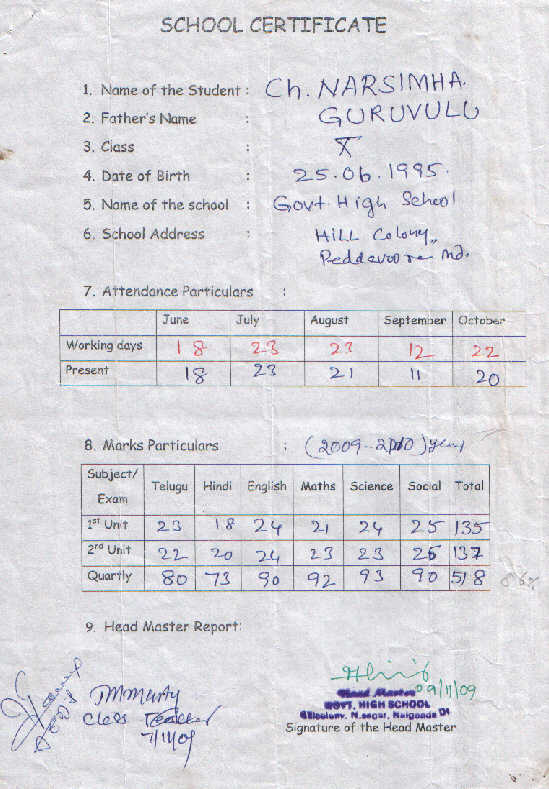 SCHOOL CERTIFICATE
1. Name of the Student : Ch. NARSIMHA
2. Father's Name : GURUVULU
3. Class : X
4. Date of Birth : 25.06.1995.
5. Name of the school : Govt High School
6. School Address : HILL Colony,,
Peddavoora Md.
7. Attendance Particulars :
June July August September October
Working days 18 23 23 12 22
Present 18 23 21 11 20
8. Marks Particulars : (2009-2010) year
Subject/ Exam Telugu Hindi English Maths Science Social Total
1st Unit 23 18 24 21 24 25 135
2nd Unit 22 20 24 23 23 25 137
Quartly 80 73 90 92 93 90 518 86%
9. Head Master Report:
09/11/09
Head Master
GOVT. HIGH SCHOOL
Hillcolony, N.sagar, Nalgonda Dt
Signature of the Head Master
Class Teacher
7/11/09